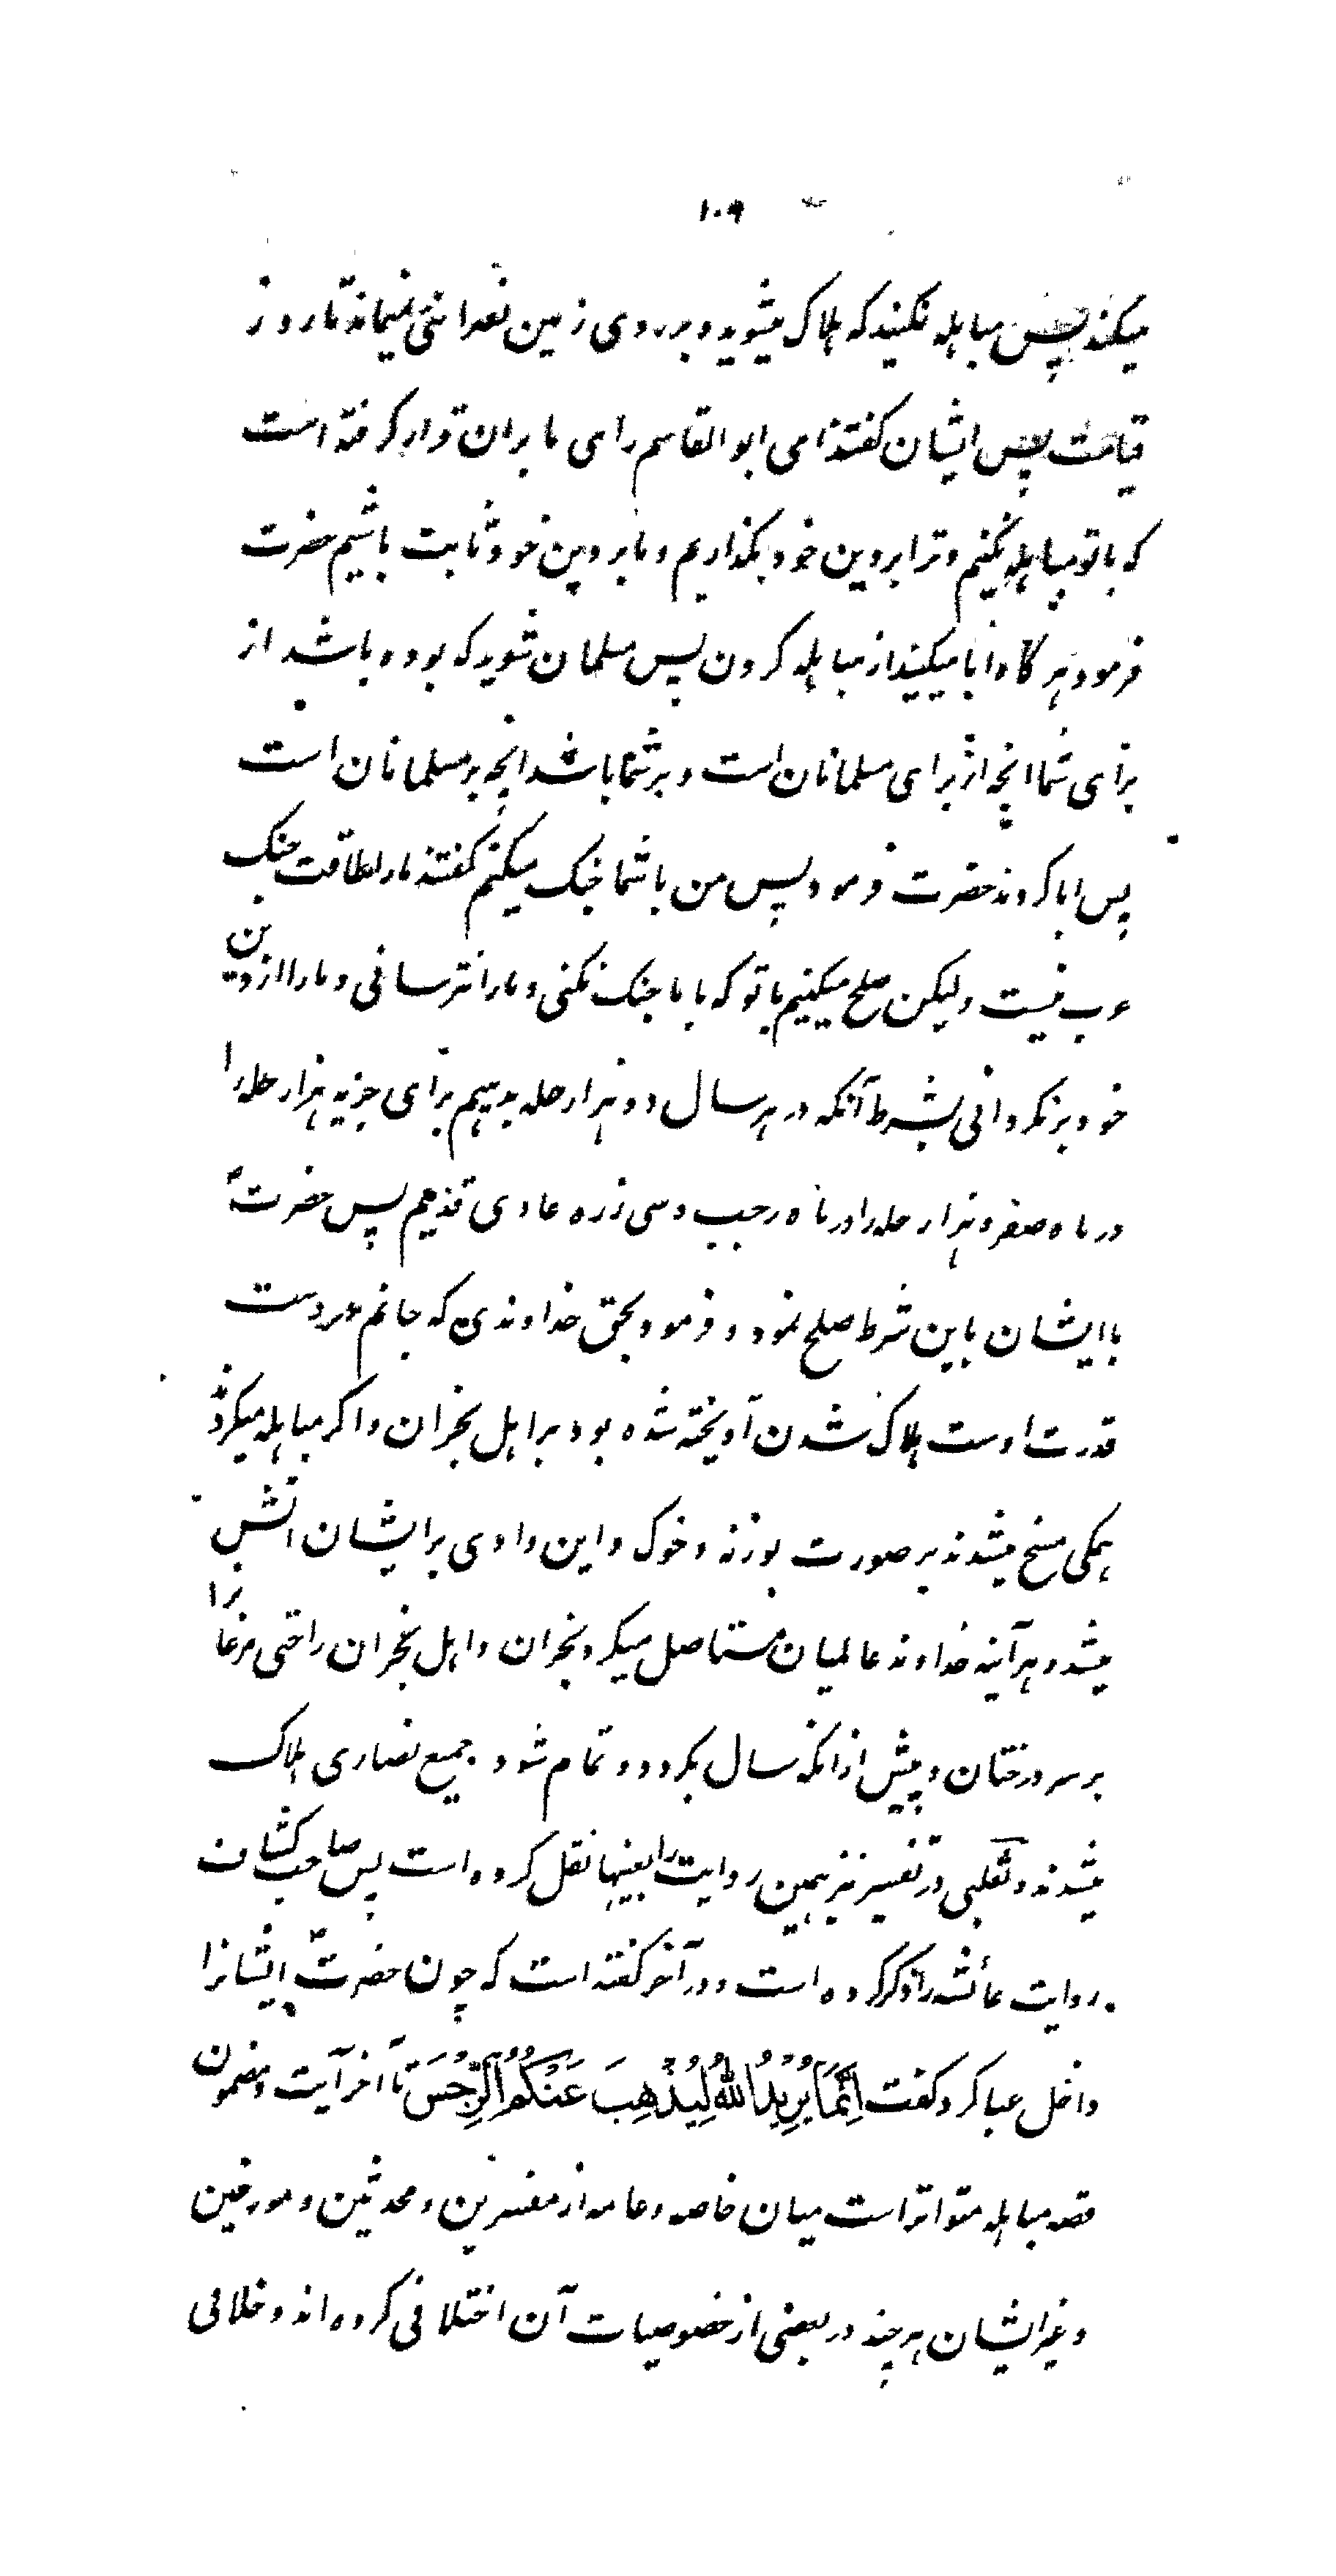 ۱۰۹
میکند پس مباهله نکنید که هلاک میشوید و بر روی زمین نصرانئی نمیماند تا روز
قیامت پس ایشان گفتند ای ابوالقاسم رای ما بران قرار گرفته است
که با تو مباهله نکنیم و ترا بردین خود بگذاریم و ما بر دین خود ثابت باشیم حضرت
فرمود هر گاه ابا میکنید از مباهله کردن پس مسلمان شوید که بوده باشد از
برای شما انچه از برای مسلمانان است و بر شما باشد انچه بر مسلمانان است
پس ابا کردند حضرت فرمود پس من با شما جنک میکنم گفتند ما را طاقت جنک
عرب نیست ولیکن صلح میکنیم با تو که با ما جنک نکنی و ما را نترسانی و ما را از دین
خود برنگردانی بشرط آنکه در هر سال دو هزار حله بدهیم برای جزیه هزار حله را
در ماه صفر و هزار حله را در ماه رجب و سی زره عادی قدیم پس حضرتؐ
با ایشان باین شرط صلح نمود و فرمود بحق خداوندی که جانم در دست
قدرت اوست هلاک شدن آویخته شده بود بر اهل نجران و اگر مباهله میکردند
همکی مسخ میشدند بر صورت بوزنه و خوک و این وادی بر ایشان اتش
میشد و هر آینه خداوند عالمیان مستاصل میکرد نجران و اهل نجران را حتی مرغانرا
بر سر درختان و پیش از انکه سال بگردد و تمام شود جمیع نصاری هلاک
میشدند و ثعلبی در تفسیر نیز همین روایت را بعینها نقل کرده است پس صاحب کشاف
روایت عائشه را ذکر کرده است و در آخر گفته است که چون حضرتؐ ایشانرا
داخل عبا کرد گفت اِنَّمَا یُرِیْدُ اللهُ لِیُذْهِبَ عَنْكُمُ الرِّجْسَ تا آخر آیت و مضمون
قصه مباهله متواتر است میان خاصه و عامه از مفسرین و محدثین و مورخین
و غیر ایشان هر چند در بعضی از خصوصیات آن اختلافی کرده اند و خلافی